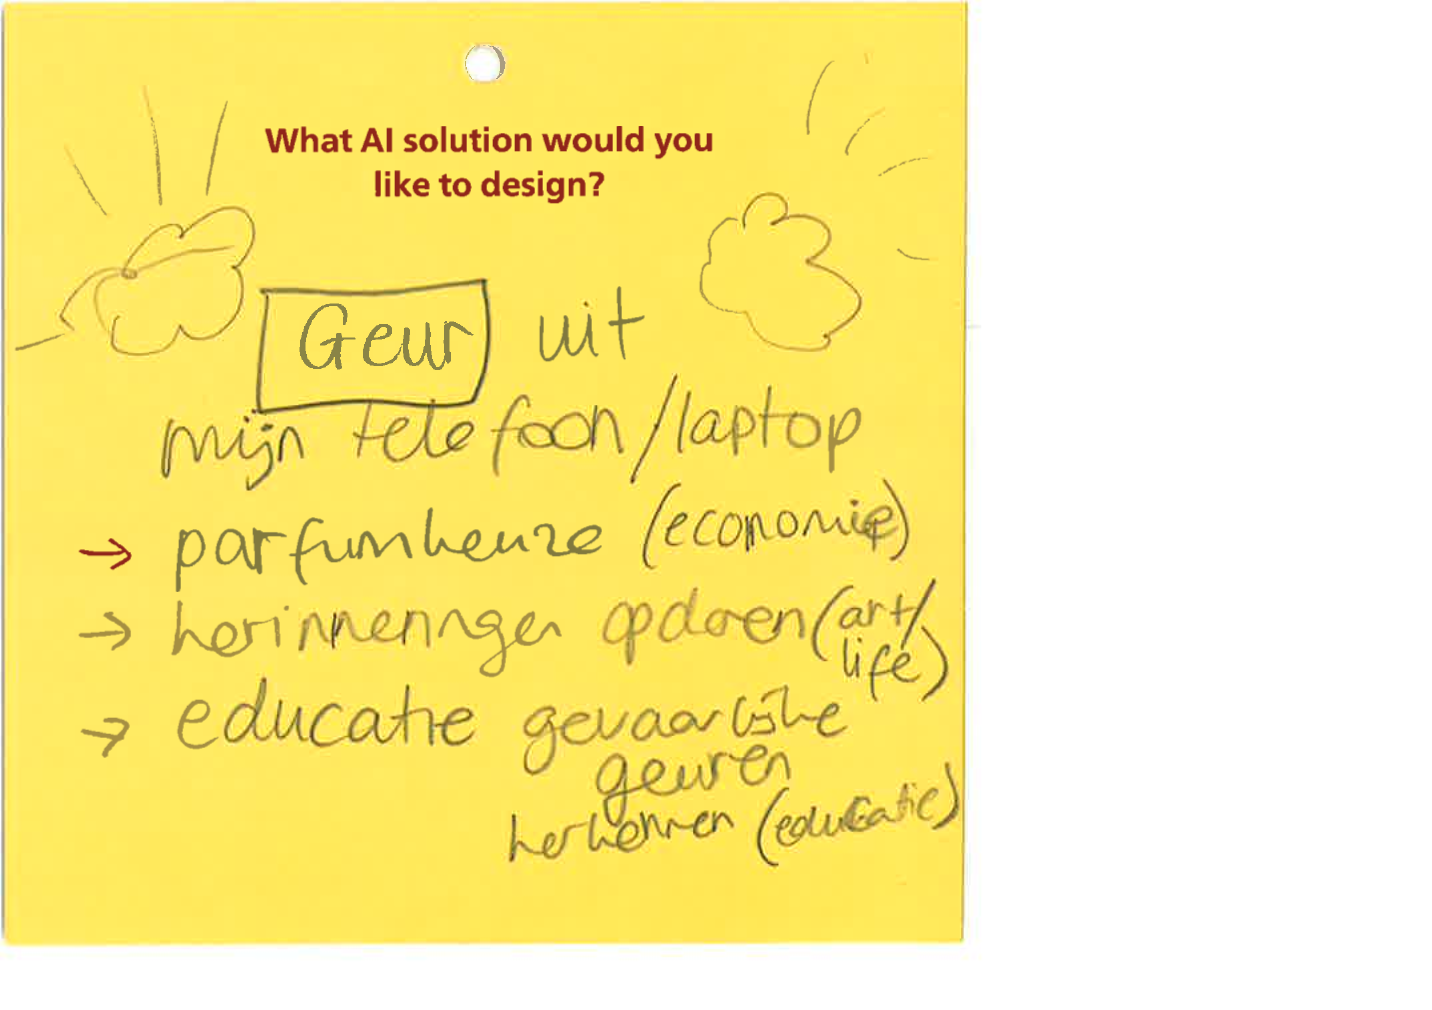 What AI solution would you
like to design?
Geur uit
mijn telefoon/laptop
→ parfumkeuze (economie)
→ herinnenngen opdoen (art/
life)
→ educatie gevaarlijke
geuren
herkennen (educatie)